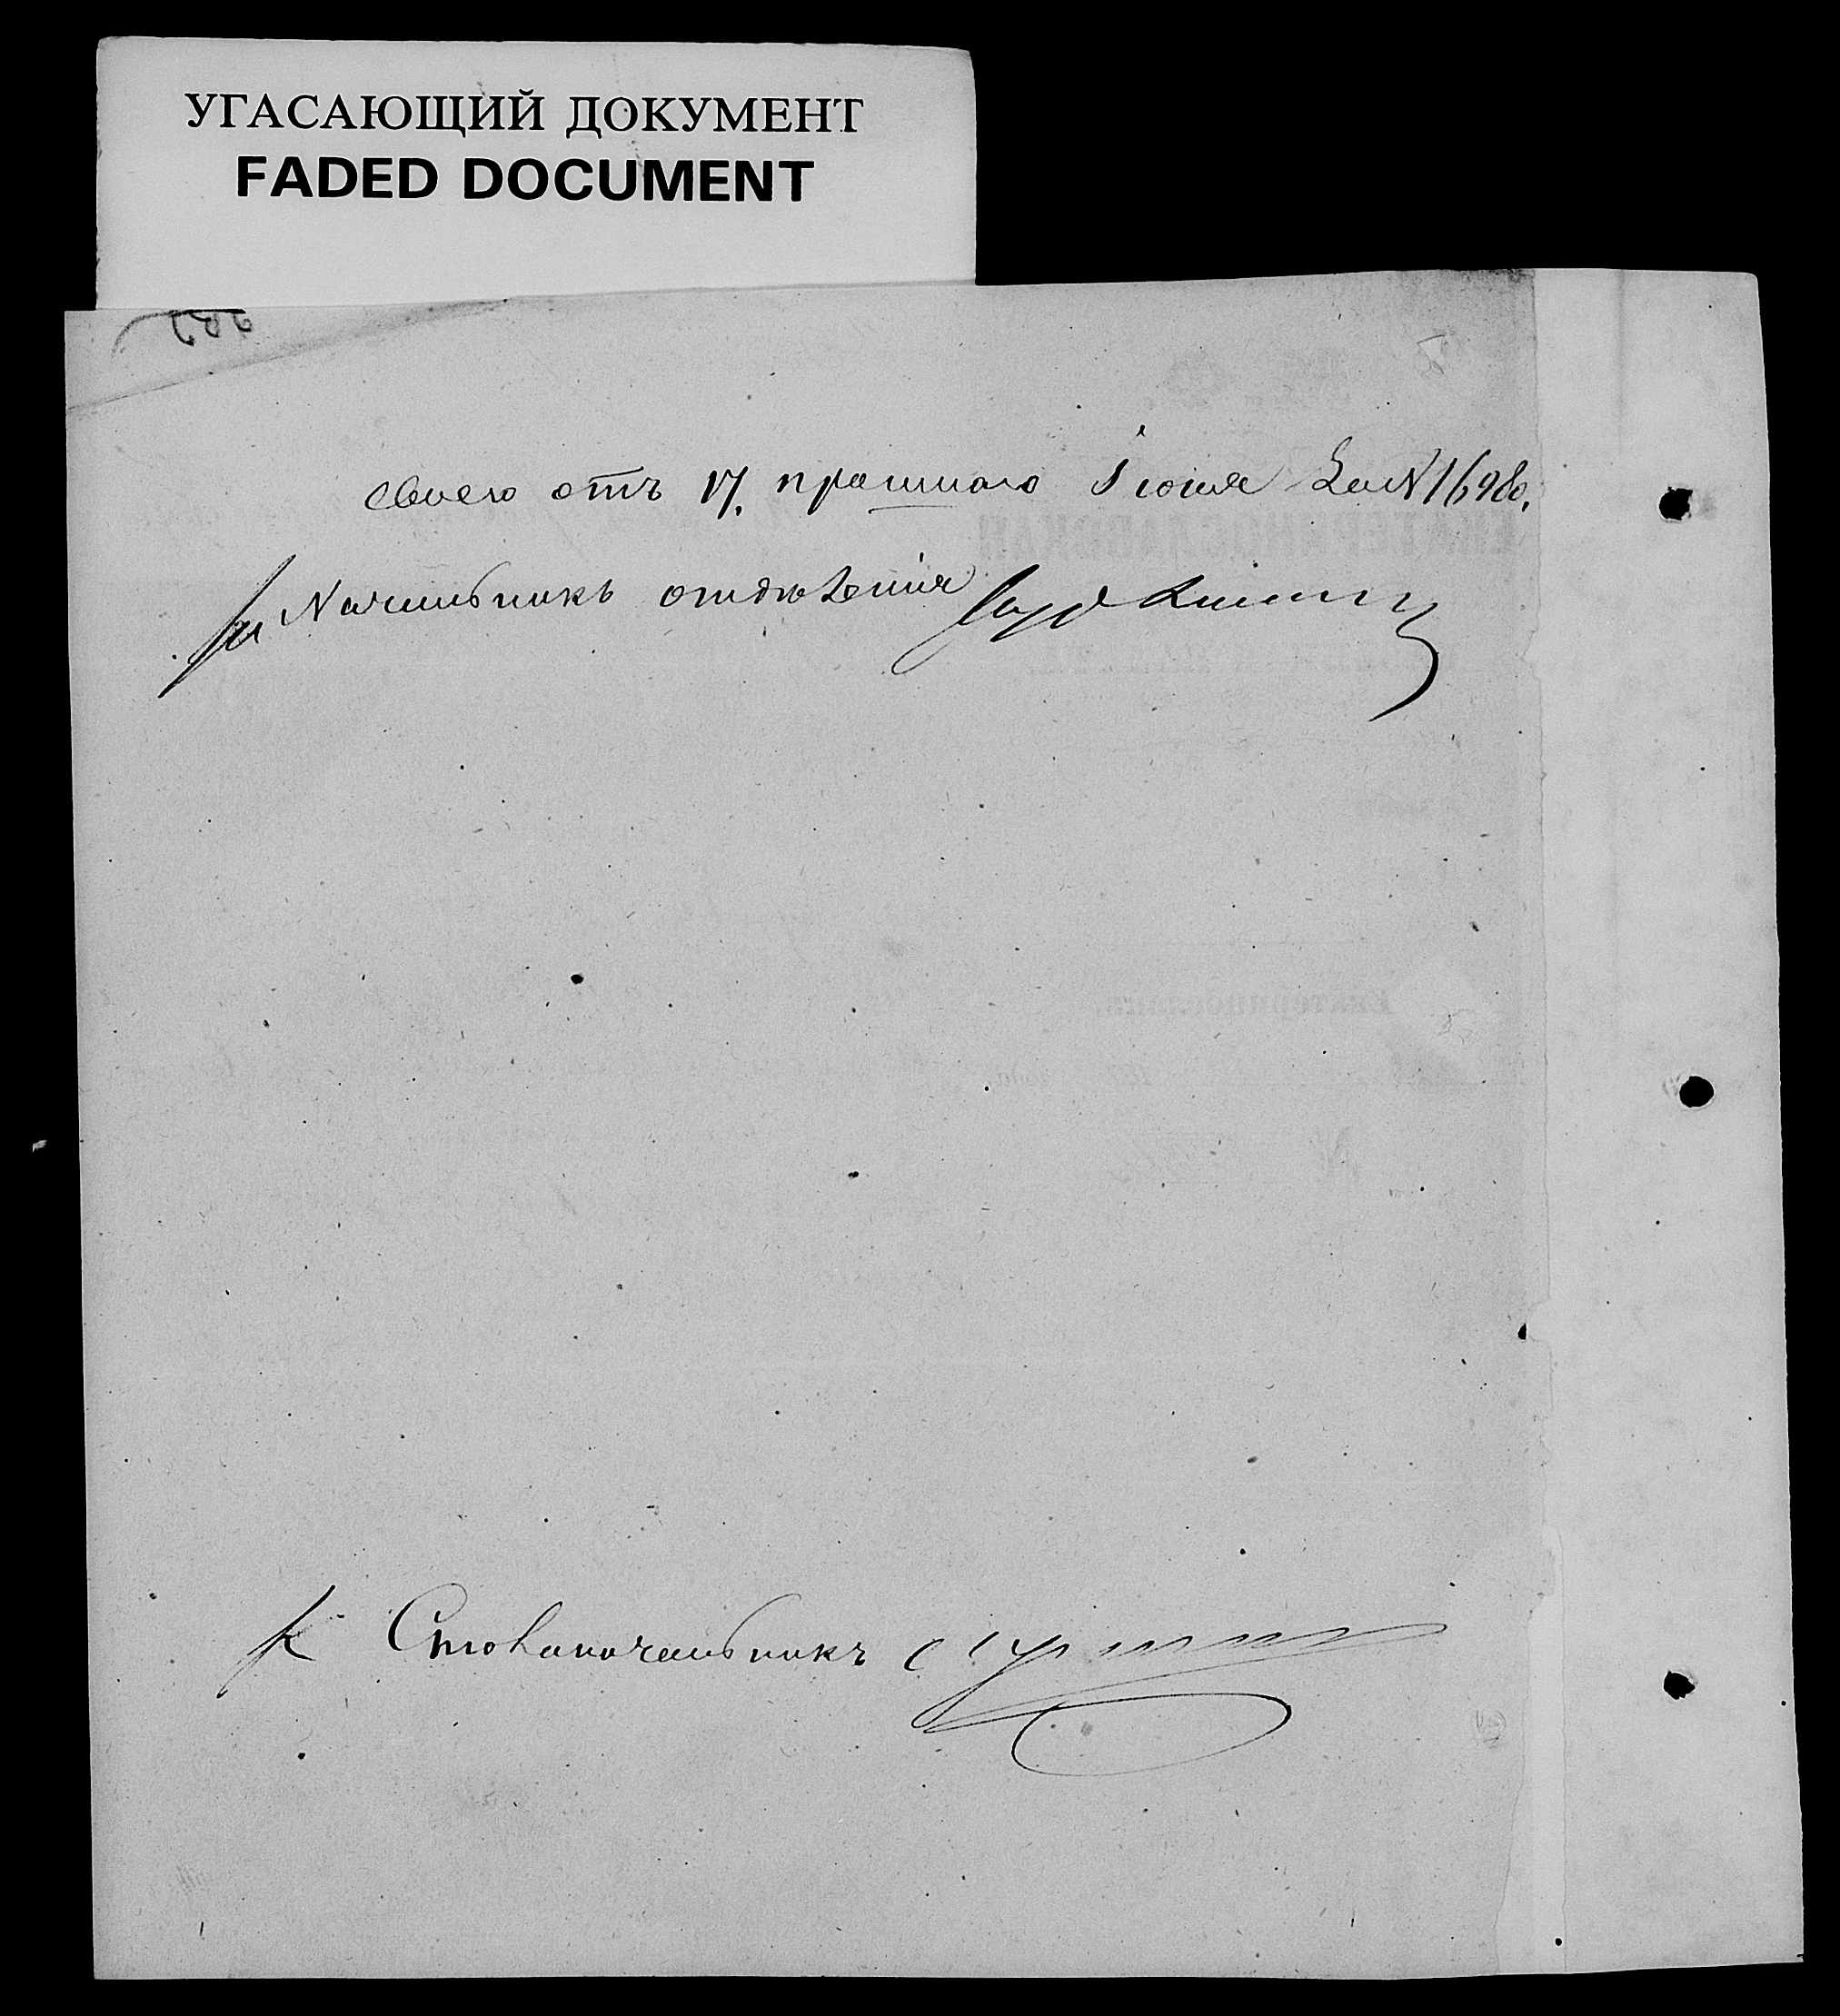 УГАСАЮЩИЙ ДОКУМЕНТ
FADED DOCUMENT
своего отъ 17. прошлаго Іюня за № 16980.
Начальникъ отдѣленія
Столоначальникъ